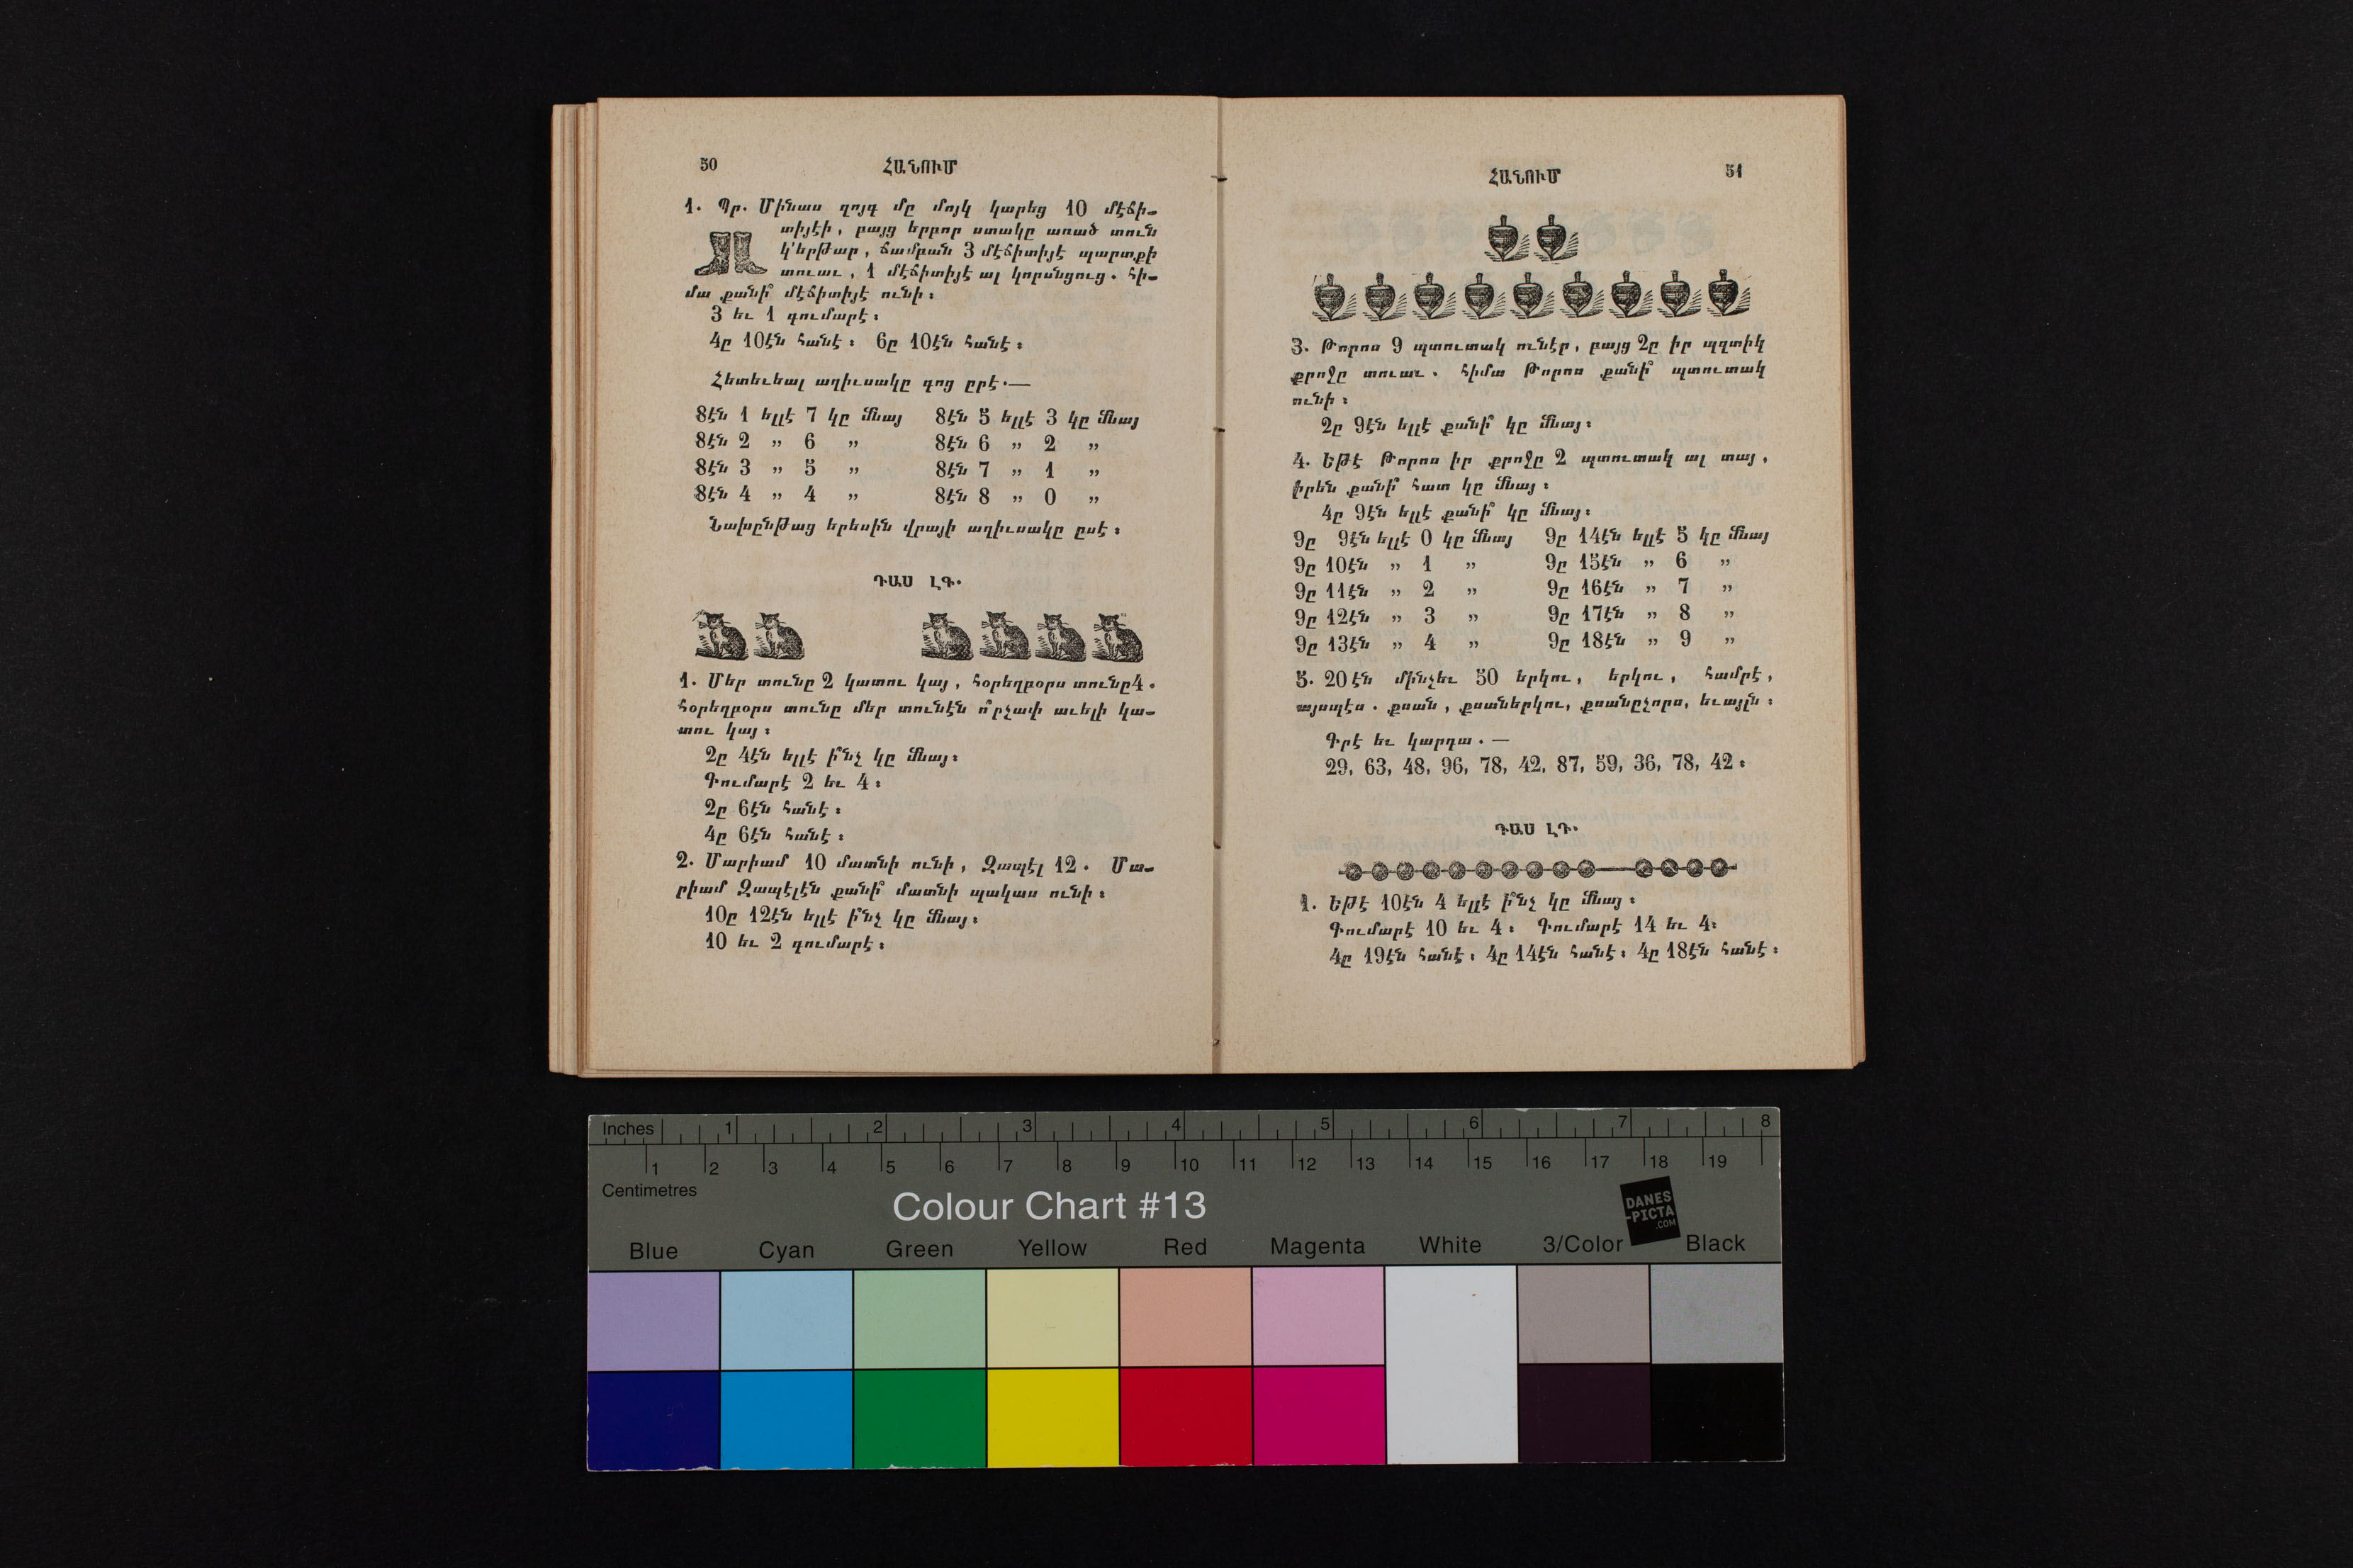 50 ՀԱՆՈՒՄ
1. Պր. Մինաս զոյգ մը մոյկ կարեց 10 մէճի–
տիյէի, բայց երբոր ստակը առած տուն
կ'երթար, ճամբան 3 մէճիտիյէ պարտքի
տուաւ, 1 մէճիտիյէ ալ կորսնցուց. հի–
մա քանի՞ մէճիտիյէ ունի:
3 եւ 1 գումարէ:
4ը 10էն հանէ: 6ը 10էն հանէ:
Հետեւեալ աղիւսակը գոց ըրէ.—
8էն 1 ելլէ 7 կը մնայ 8էն 5 ելլէ 3 կը մնայ
8էն 2 „ 6 „ 8էն 6 „ 2 „
8էն 3 „ 5 „ 8էն 7 „ 1 „
8էն 4 „ 4 „ 8էն 8 „ 0 „
Նախընթաց երեսին վրայի աղիւսակը ըսէ:
ԴԱՍ ԼԳ.
1. Մեր տունը 2 կատու կայ, հօրեղբօրս տունը4.
հօրեղբօրս տունը մեր տունէն ո՞րչափ աւելի կա–
տու կայ:
2ը 4էն ելլէ ի՞նչ կը մնայ:
Գումարէ 2 եւ 4:
2ը 6էն հանէ:
4ը 6էն հանէ:
2. Մարիամ 10 մատնի ունի, Զապէլ 12. Մա–
րիամ Զապէլէն քանի՞ մատնի պակաս ունի:
10ը 12էն ելլէ ի՞նչ կը մնայ:
10 եւ 2 գումարէ:
ՀԱՆՈՒՄ 51
3. Թորոս 9 պտուտակ ունէր, բայց 2ը իր պզտիկ
քրոջը տուաւ. հիմա Թորոս քանի՞ պտուտակ
ունի:
2ը 9էն ելլէ քանի՞ կը մնայ:
4. Եթէ Թորոս իր քրոջը 2 պտուտակ ալ տայ,
իրեն քանի՞ հատ կը մնայ:
4ը 9էն ելլէ քանի՞ կը մնայ:
9ը 9էն ելլէ 0 կը մնայ 9ը 14էն ելլէ 5 կը մնայ
9ը 10էն „ 1 „ 9ը 15էն „ 6 „
9ը 11էն „ 2 „ 9ը 16էն „ 7 „
9ը 12էն „ 3 „ 9ը 17էն „ 8 „
9ը 13էն „ 4 „ 9ը 18էն „ 9 „
5. 20էն մինչեւ 50 երկու, երկու, համրէ,
այսպէս. քսան, քսաներկու, քսանըչորս, եւայլն:
Գրէ եւ կարդա.—
29, 63, 48, 96, 78, 42, 87, 59, 36, 78, 42:
ԴԱՍ ԼԴ.
1. Եթէ 10էն 4 ելլէ ի՞նչ կը մնայ:
Գումարէ 10 եւ 4: Գումարէ 14 եւ 4:
4ը 19էն հանէ: 4ը 14էն հանէ: 4ը 18էն հանէ:
Inches 1 2 3 4 5 6 7 8
1 2 3 4 5 6 7 8 9 10 11 12 13 14 15 16 17 18 19
Centimetres
Colour Chart #13
DANES
-PICTA
.COM
Blue Cyan Green Yellow Red Magenta White 3/Color Black